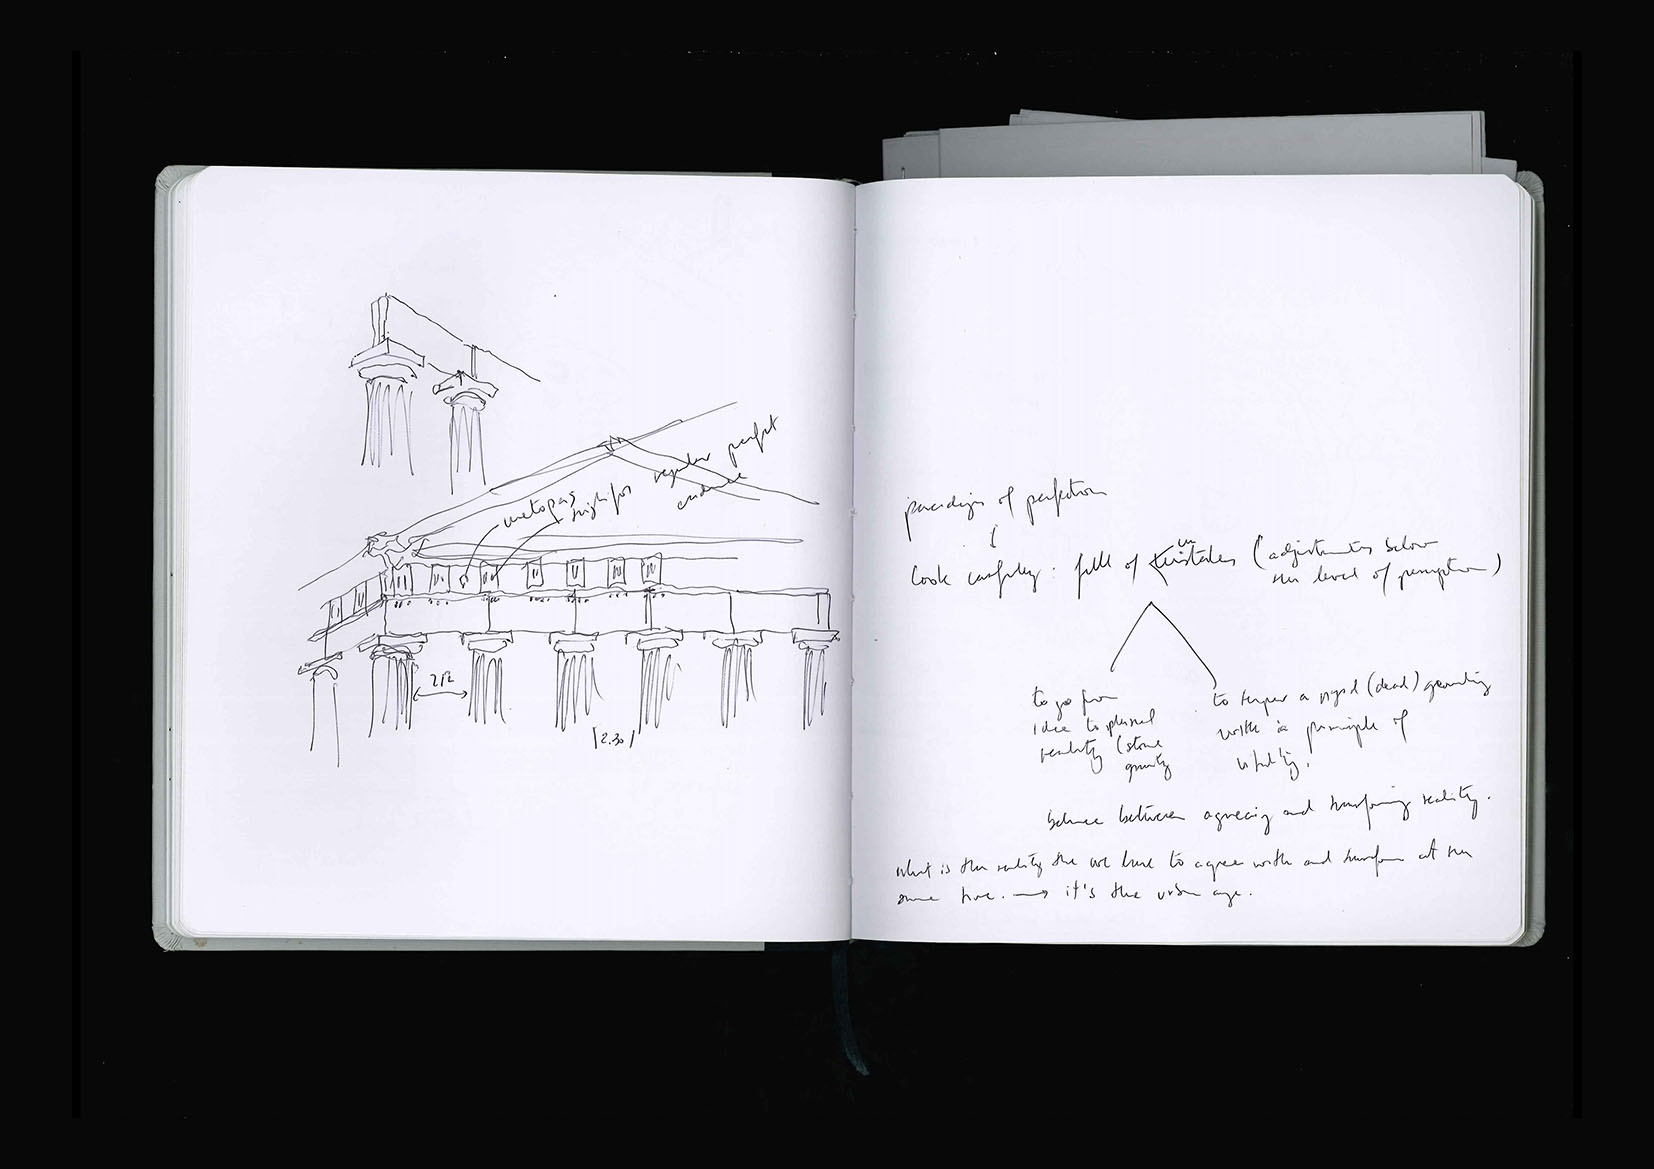 metopas
triglifos
regular perfect
cadence
2.12
|2.30|
paradigm of perfection
look carefully: full of mistakes (adjustments below
the level of perception)
to go from
idea to physical
reality (stone
gravity
to temper a rigid (dead) geometry
with a principle of
vitality.
balance between agreeing and transforming reality.
what is the reality the we have to agree with and transform at the
same time. → it's the urban age.